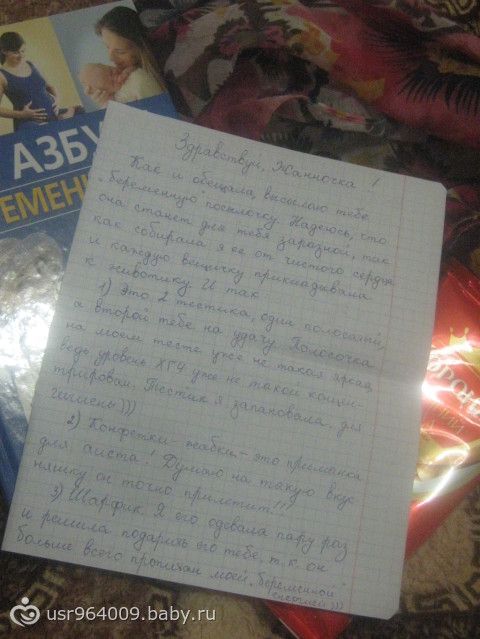 АЗБУ
ЕМЕНН
Здравствуй, Жанночка!
Как и обещала, высылаю тебе
"беременную" посылочку. Надеюсь, что
она станет для тебя заразной, так
как собирала я ее от чистого сердца
и каждую вещичку прикладывала
к животику. И так
1) Это 2 тестика, один полосатый,
а второй тебе на удачу. Полосочка
на моем тесте уже не такая яркая,
ведь уровень ХГЧ уже не такой концен-
трирован. Тестик я запаковала, для
гигиены)))
2) Конфетки-жабки - это приманка
для аиста! Думаю на такую вкус
няшку он точно прилетит!!!
3) Шарфик. Я его одевала пару раз
и решила подарить его тебе, т.к. он
больше всего пропитан моей "беременной"
энергией)))
КОРО
usr964009.baby.ru